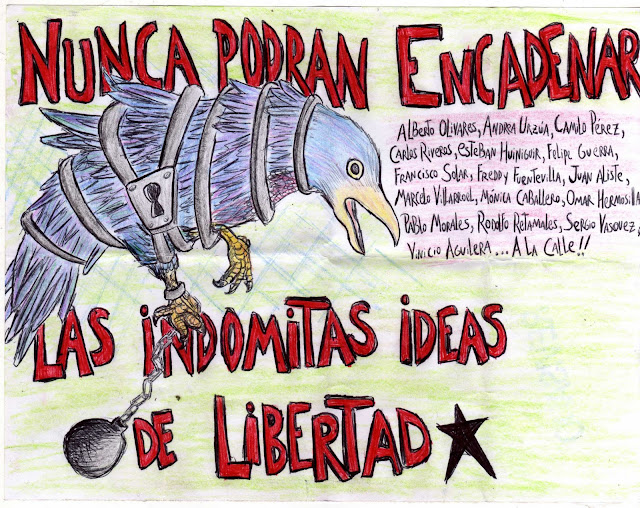 NUNCA PODRAN ENCADENAR
ALBERTO OLIVARES, ANDREA URZÚA, CAMILO PÉREZ,
CARLOS RIVEROS, ESTEBAN HUINIGUIR, FELIPE GUERRA,
FRANCISCO SOLAR, FREDDY FUENTEVILLA, JUAN ALISTE,
MARCELO VILLARROEL, MÓNICA CABALLERO, OMAR HERMOSILLA
PABLO MORALES, RODOLFO RETAMALES, SERGIO VASQUEZ,
VINICIO AGUILERA... A LA CALLE!!
LAS INDOMITAS IDEAS
DE LIBERTAD